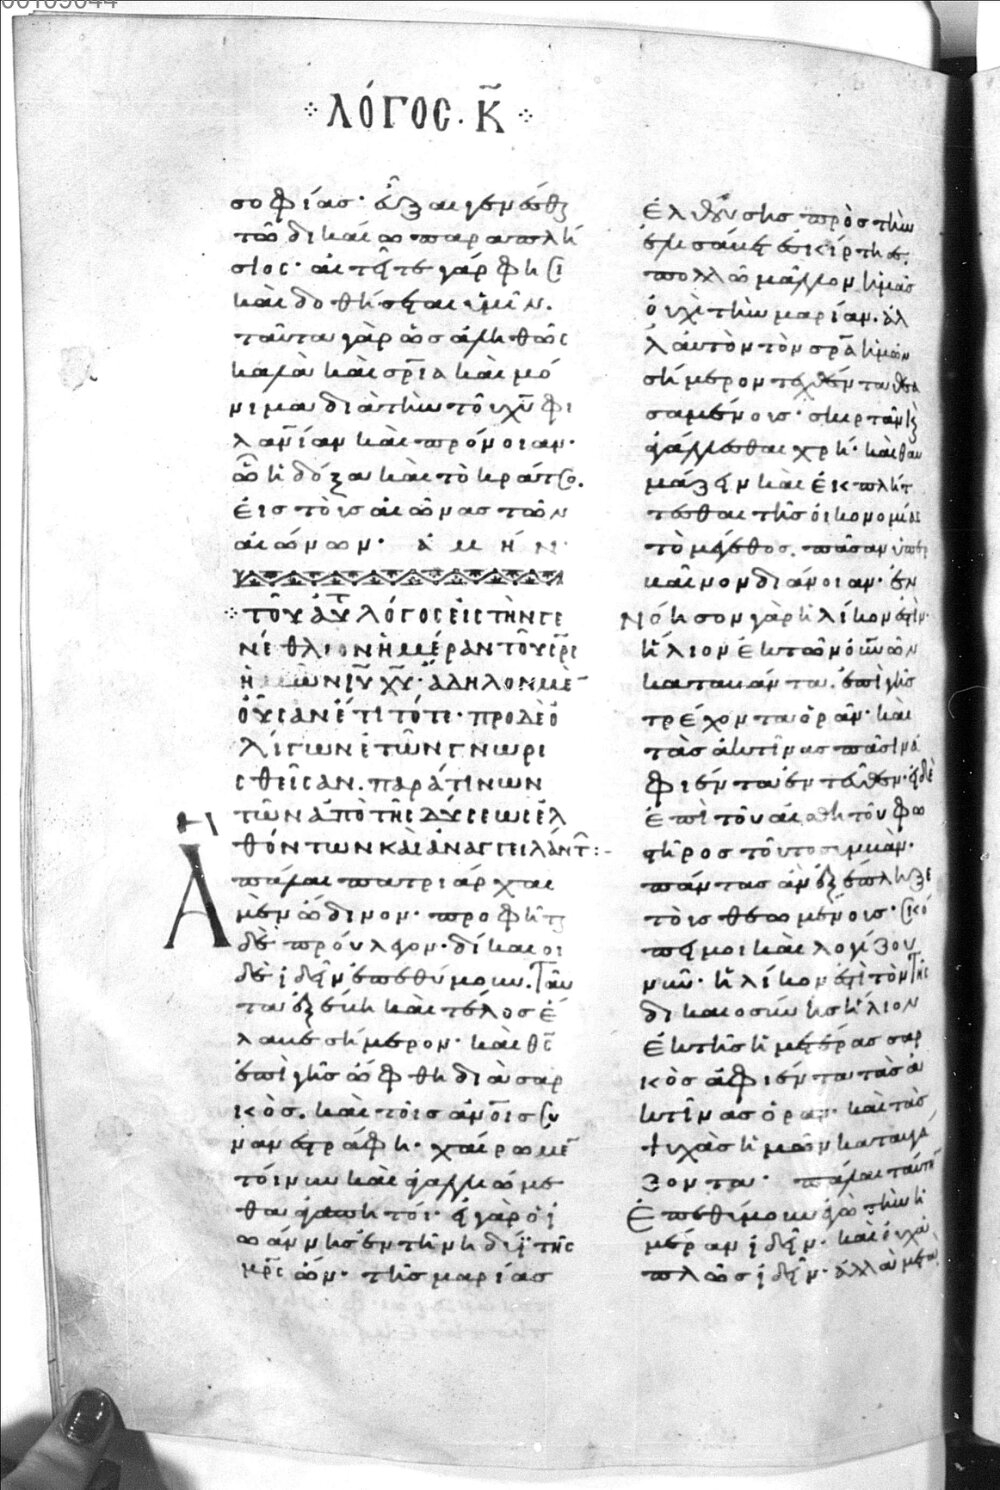 ΛΌΓΟΣ. Κ̃
σοφίας· αὔξαι γενέσθαι
τῶ δικαίω παραπλή
σιος· αἰτεῖτε γάρ φησι
καὶ δοθήσεται ὑμῖν.
ταῦτα γὰρ ὡς ἀληθῶς
καλὰ καὶ σρ̅ια καὶ μό
νιμα διὰ τὴν τοῦ χυ̅ φι
λαν̅ίαν καὶ πρόνοιαν·
ᾧ ἡ δόξα καὶ τὸ κράτος.
εἰς τοὺς αἰῶνας τῶν
αἰώνων· ἀμήν·
ΤΟΥ ΑΥΤ ΛΌΓΟΣ ΕἸΣ ΤῊΝ ΓΕ
ΝΈΘΛΙΟΝ ἩΜΈΡΑΝ ΤΟΥ ΣΡ̅Σ
ἩΜΩΝ ΙΥ̅ ΧΥ̅· ἌΔΗΛΟΝ ΜῈ
ΟΥ̓͂ΣΑΝ ἜΤΙ ΤΌΤΕ· ΠΡῸ ΔῈ Ὀ
ΛΊΓΩΝ ἘΤΩ͂Ν ΓΝΩΡΙ
ΣΘΕΙ͂ΣΑΝ. ΠΑΡΆ ΤΙΝΩΝ
ΤΩ͂Ν ἈΠῸ ΤΗ͂Σ ΔΎΣΕΩΣ ἘΛ
ΘΌΝΤΩΝ ΚΑῚ ἈΝΑΓΓΕΙΛΆΝΤ:-
Ἃ
πάλαι πατριάρχαι
μὲν ὤδινον· προφῆται
δὲ πρόυλεγον· δίκαιοι
δὲ ἰδεῖν ἐπεθύμουν. ταῦ
τα ἐξέβη καὶ τέλος ἔ
λαβε σήμερον· καὶ θς̅
ἐπὶ γῆς ὤφθη διὰ σαρ
κὸς. καὶ τοῖς ἀν̅οις συ
νανεστράφη· χαίρωμε̅
τοίνυν καὶ ἀγαλλιώμε
θα ἀγαπητοί· εἰ γὰρ ὁ ἰ
ωάννης ἐν τῆ νηδύϊ τῆς
μρ̅ς ὢν· τῆς μαρίας
ἐλθούσης πρὸς τὴν
ἐλισάβετ ἐσκίρτησε,
πολλῶ μᾶλλον ἡμᾶς
ὀυχὶ τὴν μαρίαν. ἀλ
λ' αυτὸν τὸν σρ̅α ἡμῶν
σήμερον τεχθέντα θεα
σαμένοις· σκιρτᾶν καὶ
ἀγάλλεσθαι χρή· καὶ θαυ
μάζειν καὶ ἐκπλήτ
τεσθαι τῆς ὀικονομίας
τὸ μέγεθος. πᾶσαν ὑπερ
βαῖνον διάνοιαν· ἐν
νόησον γὰρ ἡλίκον ἐστὶν·
ἥλιον ἐκ τῶν οὐν̅ων
καταβάντα. ἐπὶ γῆς
τρέχοντα ὁρᾶν· καὶ
τὰς ἀκτῖνας πᾶσιν ἀ
φιέντα ἐντεῦθεν· εἰ δὲ
ἐπὶ τοῦ αἰσθητοῦ φω
στῆρος τοῦτο συμβὰν·
πάντας ἂν ἐξέπληξε
τοὺς θεωμένους· σκό
πει μοι καὶ λογίζου
νῦν· ἡλίκον ἐστὶ τὸν τῆς
δικαιοσύνης ἥλιον
ἐκ τῆς ἡμετέρας σαρ
κὸς ἀφιέντα τὰς ἀ
κτῖνας ὁρᾶν· καὶ τὰς
ψυχὰς ἡμῶν καταυγά
ζοντα· πάλαι ταύτην
Ἐπεθύμουν ἐγὼ τὴν ἡ
μέραν ἰδεῖν· καὶ ὀυχ' ἁ
πλῶς ἰδεῖν· ἀλλὰ μετὰ